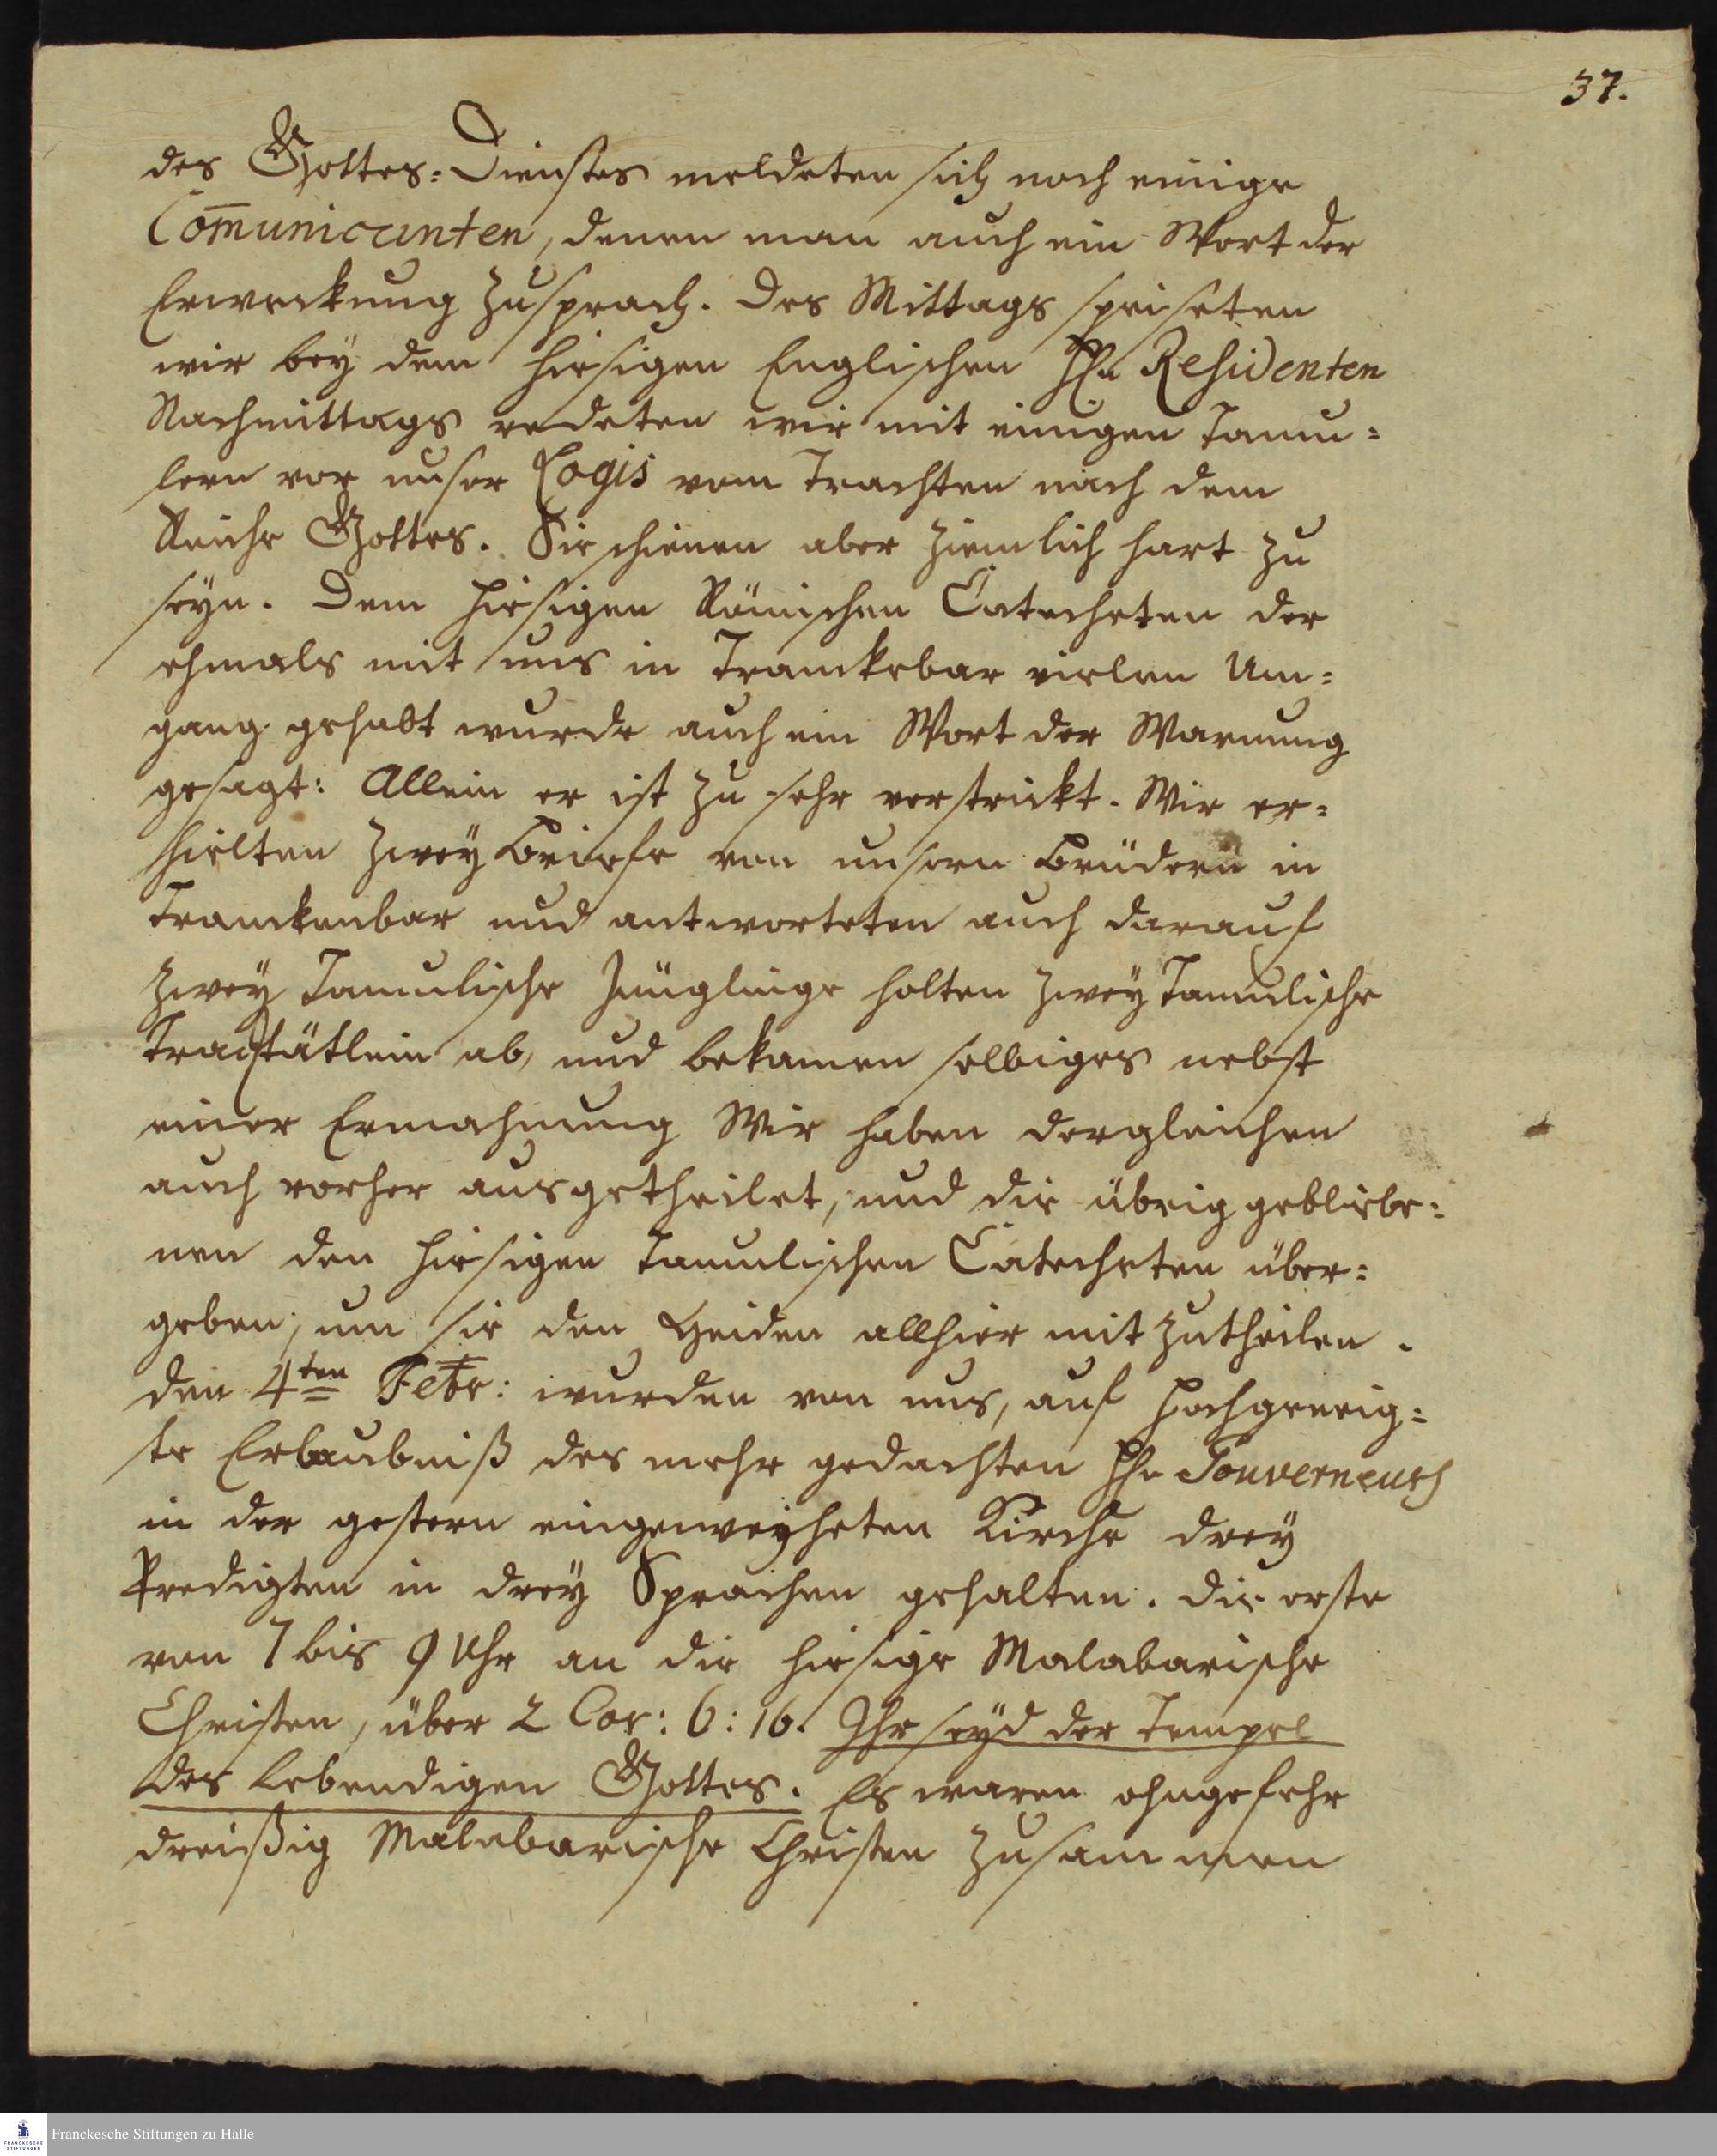 37.
des Gottes=Dienstes meldeten sich noch einige
Com̅unicanten, denen man auch ein Wort der
Erweckung zusprach. Des Mittags speiseten
wir bey dem hiesigen Englischen Hn Residenten
Nachmittags redeten wir mit einigen Tamu=
lern vor unser Logis vom Trachten nach dem
Reiche Gottes. Sie schienen aber ziemlich hart zu
seyn. Dem hiesigen Römischen Catecheten der
ehmals mit uns in Tranckebar vielen Um=
gang gehabt wurde auch ein Wort der Warnung
gesagt: Allein er ist zu sehr verstrickt. Wir er=
hielten zwey Briefe von unsern Brüdern in
Tranckenbar und antworteten auch darauf
Zwey Tamulische Jünglinge holten zwey Tamulische
Tractätlein ab, und bekamen selbiges nebst
einer Ermahnung Wir haben dergleichen
auch vorher ausgetheilet, und die übrig gebliebe=
nen den hiesigen Tamulischen Catecheten über=
geben, um sie den Heiden allhier mitzutheilen.
den 4ten Febr: wurden von uns, auf hochgeneig=
te Erlaubniß des mehr gedachten Hn Gouverneurs
in der gestern eingeweyheten Kirche drey
Predigten in drey Sprachen gehalten. Die erste
von 7 bis 9 Uhr an die hiesige Malabarische
Christen, über 2 Cor: 6: 16. Ihr seyd der Tempel
des lebendigen Gottes. Es waren ohngefehr
dreißig Malabarische Christen zusammen
Franckesche Stiftungen zu Halle